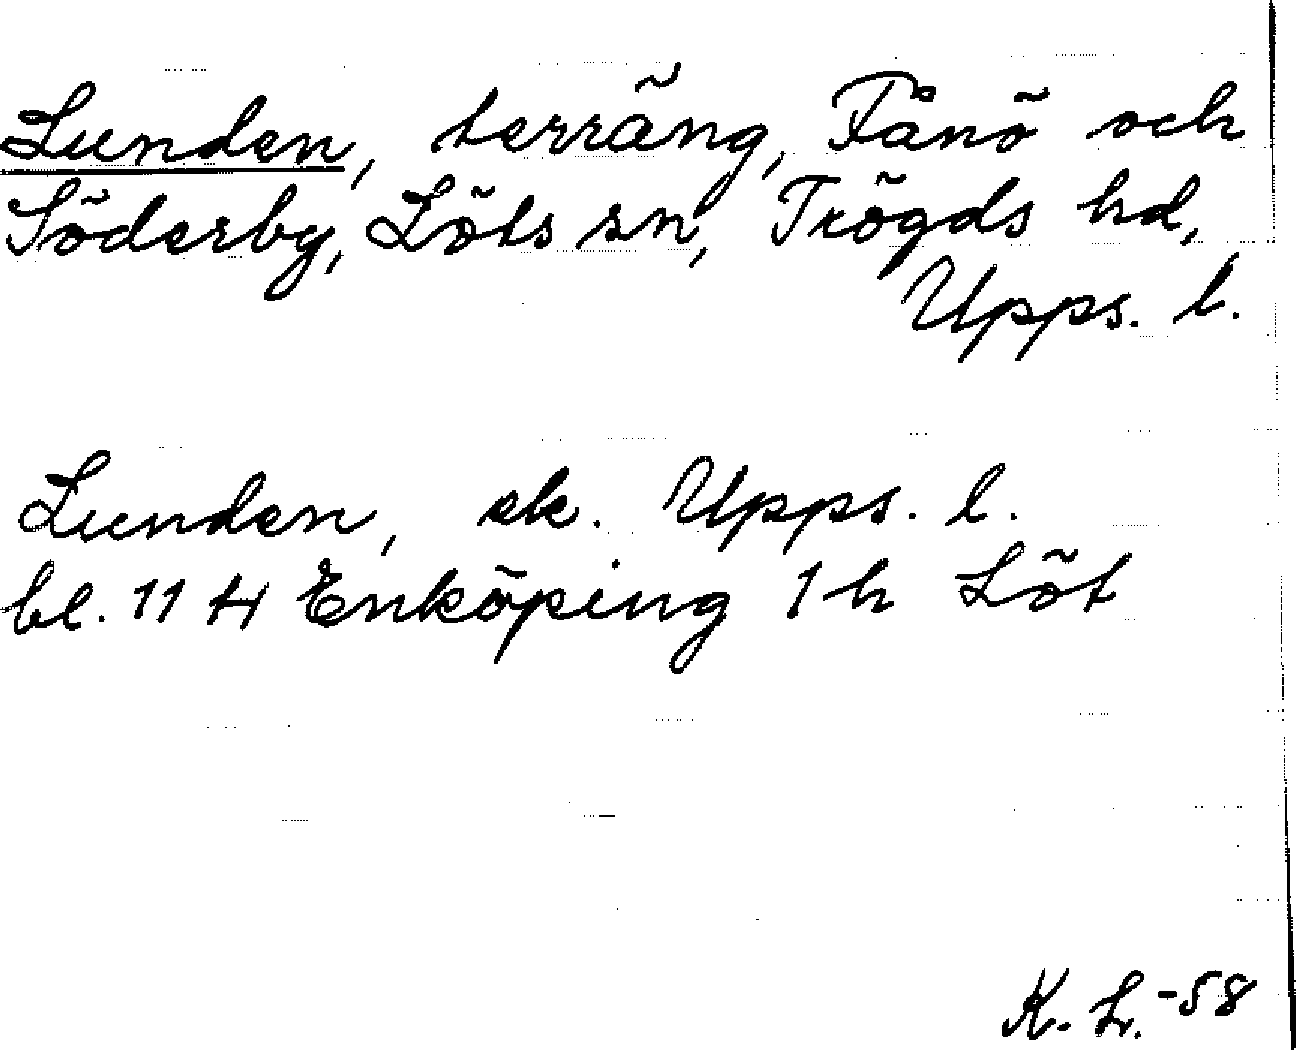 Lunden, terräng, Fånö och
Söderby, Löts sn, Trögds hd,
Upps. l.
Lunden, ek. Upps. l.
bl. 11 H Enköping 1 h Löt
K. L. -58